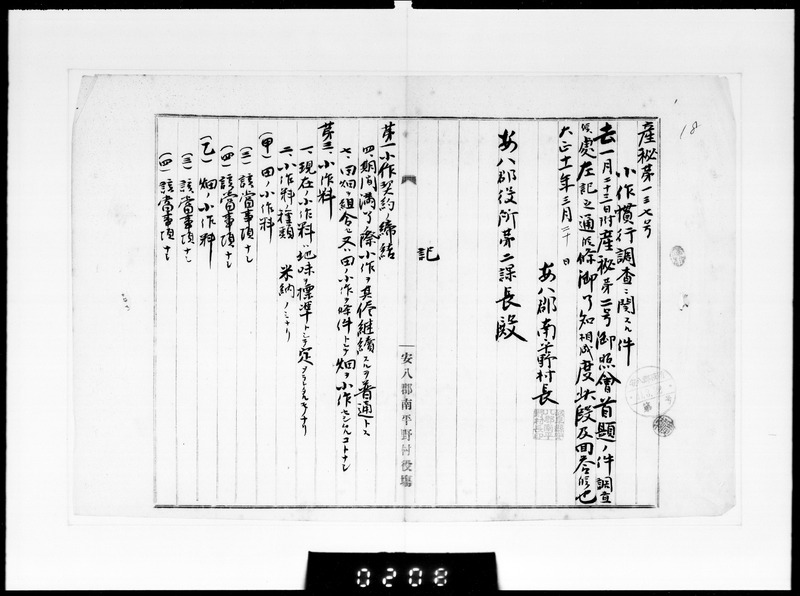 18
産秘第一三七号
小作慣行調査ニ関スル件
去一月二十三日附産秘第二号御照會首題ノ件調査
候處左記之通ニ候條御了知相成度此段及回答候也
大正十一年三月二十日
安八郡南平野村長
安八郡役所第二課長殿
記
安八郡南平野村役場
第一小作契約ノ締結
四、期间満了ノ際小作ヲ其侭継續スルヲ普通トス
七、田畑ヲ組合セ又ハ田ノ小作ヲ條件トシテ畑ヲ小作セシムルコトナシ
第三、小作料
一、現在ノ小作料ハ地味ヲ標準トシテ定メラレタルモノナリ
二、小作料種類 米納ノミナリ
(甲) 田ノ小作料
(三) 該當事項ナシ
(四) 該當事項ナシ
(乙) 畑ノ小作料
(三) 該當事項ナシ
(四) 該當事項ナシ
0208